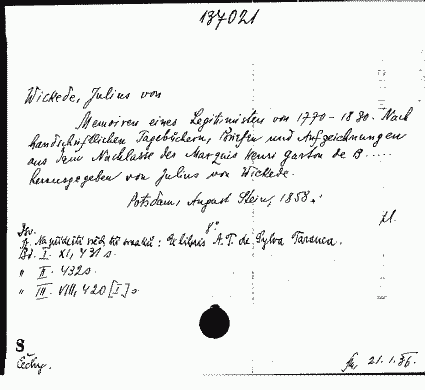 137021
Wickede, Julius von
Memoiren eines Legitimisten von 1770-1830. Nach
handschriftlichen Tagebüchern, Briefen und Aufzeichnungen
aus dem Nachlasse des Marquis Henri Gaston de B.....
herausgegeben von Julius von Wickede.
Potsdam, August Stein, 1858.
8°
Na přídeští : Exlibris A.T. de Sylva Tarouca.
Bd. I. XI, 431 s.
" II. 432 s.
" III. VIII, 420 [I] s.
S
Čechy.
21.1.86.